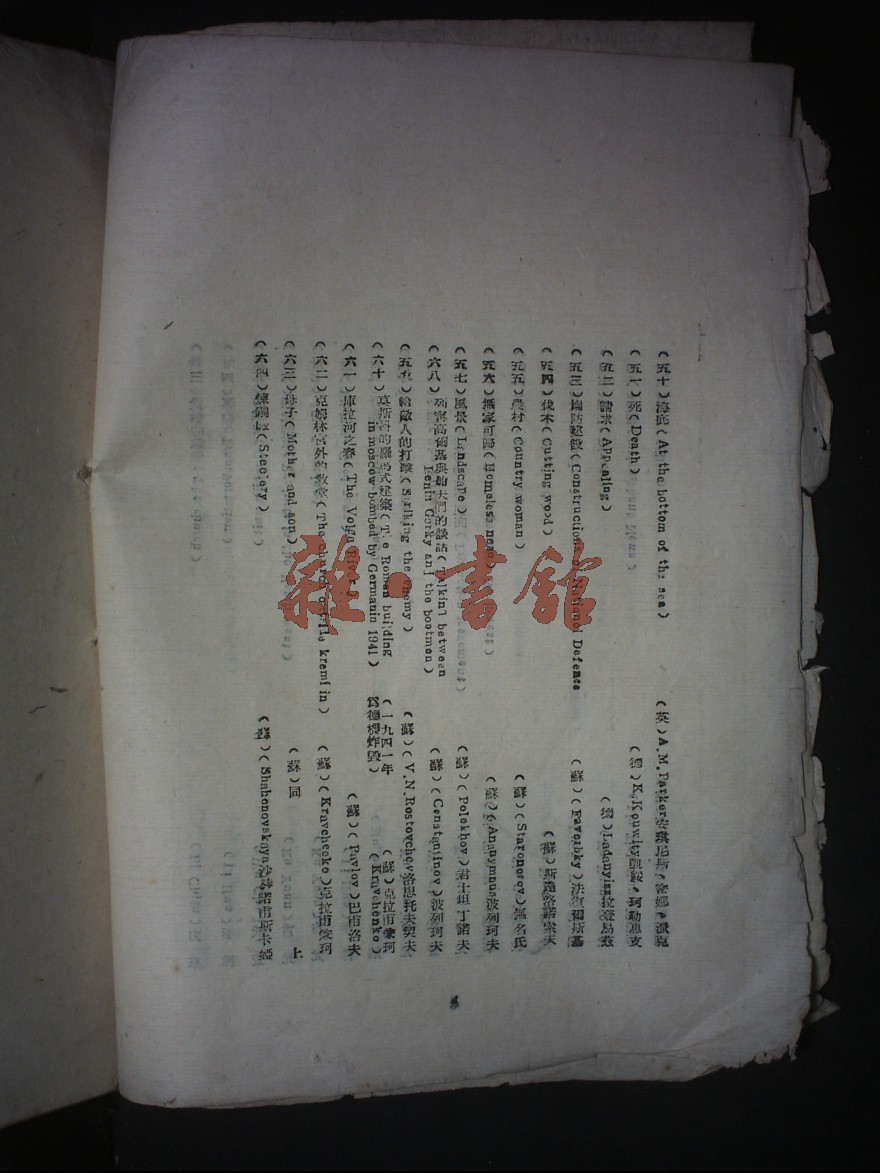 (五十)海底(At the bottom of the sea) (英)A.M.Parker安琪尼斯•密娜•派克
(五一)死(Death) (德)K.Kouwity凱綏•珂勒惠支
(五二)請求(Appealing) (德)Ladanyisz拉登易兹
(五三)國防建設(Constructions of National Defence (蘇)(Favosbky)法復爾斯基
(五四)伐木(Cutting wood) (蘇)斯達洛諾索夫
(五五)農村(Country woman) (蘇)(Staronosov)無名氏
(五六)無家可歸(Homeless (蘇)(Ananymaus波列珂夫
(五七)風景(Landscape) (蘇)(Polekhov)君士坦丁諾夫
(六八)列寧高爾基與船夫們的談話(Talking between
Lenin Gorky and the bootmen) (蘇)(Censtantinov)波列珂夫
(五九)給敵人的打擊(Striking the enomy) (蘇)(V.N.Rostovchov洛思托夫契夫
(六十)莫斯科的羅馬式建築(The Roman building (一九四一年 (蘇)克拉甫蒙珂
in moscow bombed by Germanin 1941) 爲德機炸毁) (Kravchenko)
(六一)庫拉河之春(The Volga River (蘇)(Pavlov)巴甫洛夫
(六二)克姆林宮外的教堂(The church kremlin) (蘇)(Kravcheeko)克拉甫蒙珂
(六三)母子(Mother and son) (蘇)同 上
(六四)煉鋼 (Steelery) (蘇)(Shabonovskaya 諾甫斯卡婭
雜•書館